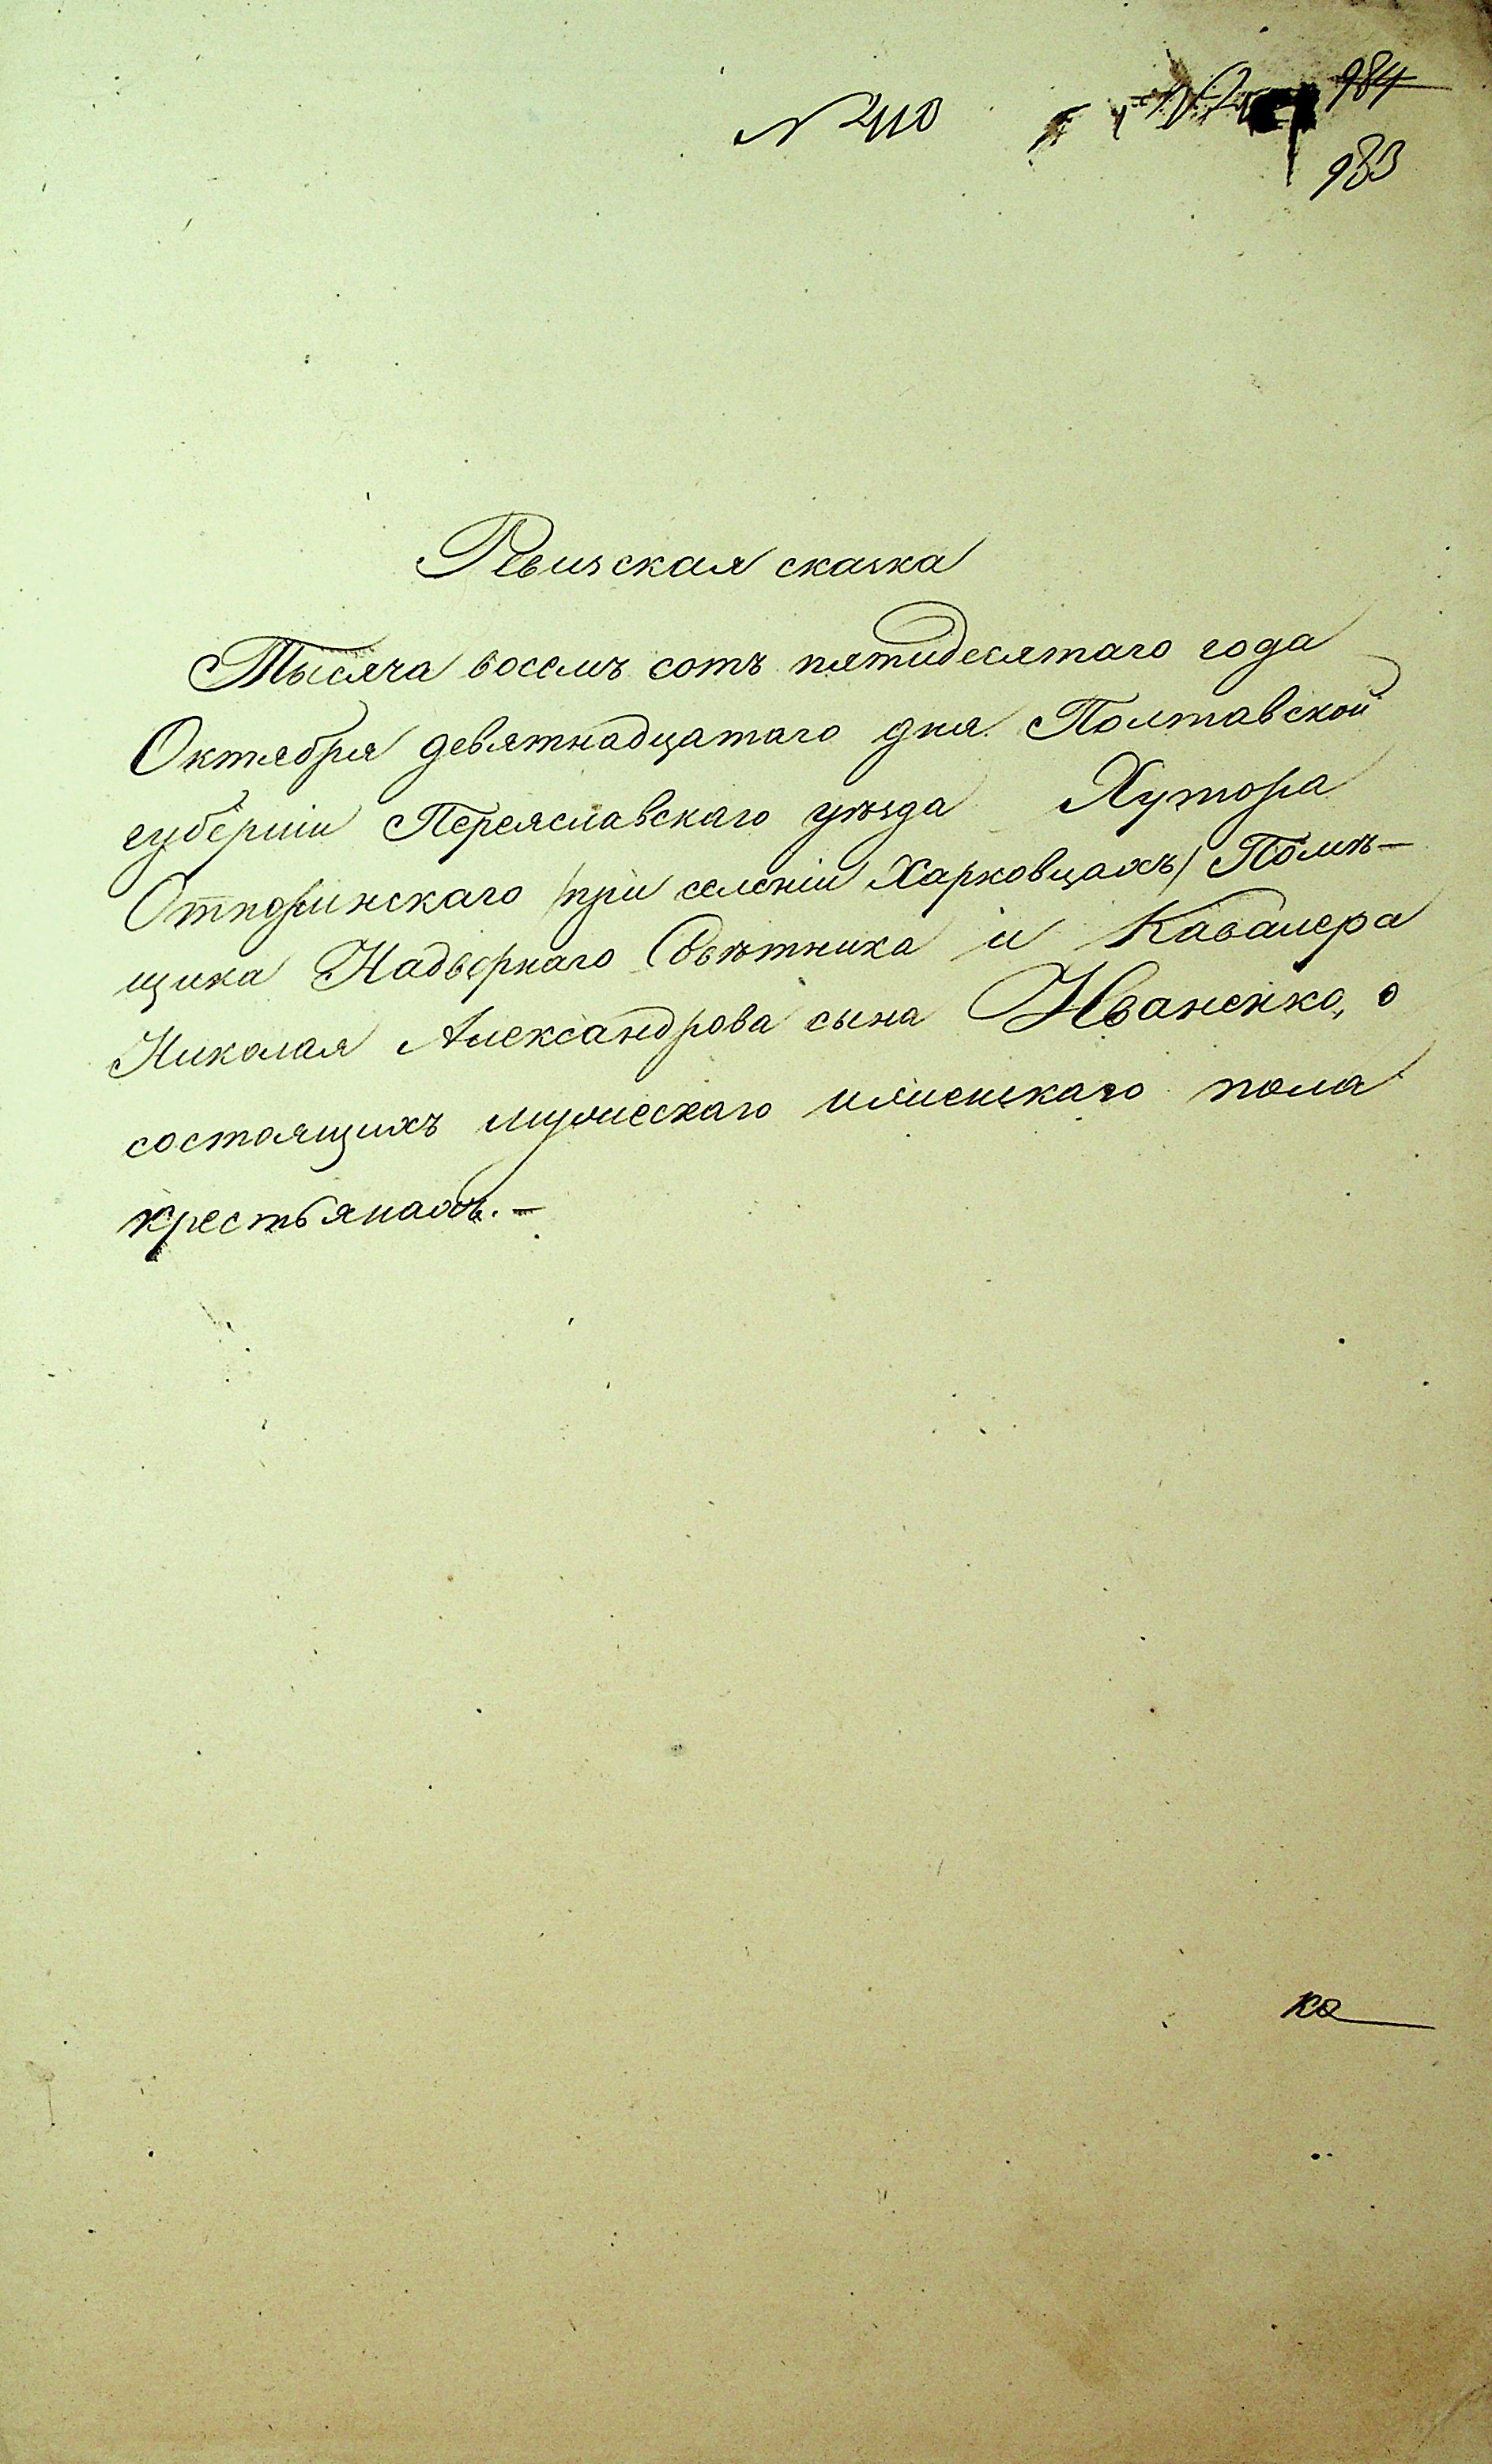 № 410
984
983
Ревизская сказка
Тысяча восемь сотъ пятидесятаго года
Октября девятнадцатаго дня Полтавской
губерніи Переяславскаго уѣзда Хутора
при селеніи Харковцахъ) Помѣ-
щика Надворнаго Совѣтника и Кавалера
Николая Александрова сына Иваненко, о
состоящихъ мужескаго и женскаго пола
крестьянахъ.-